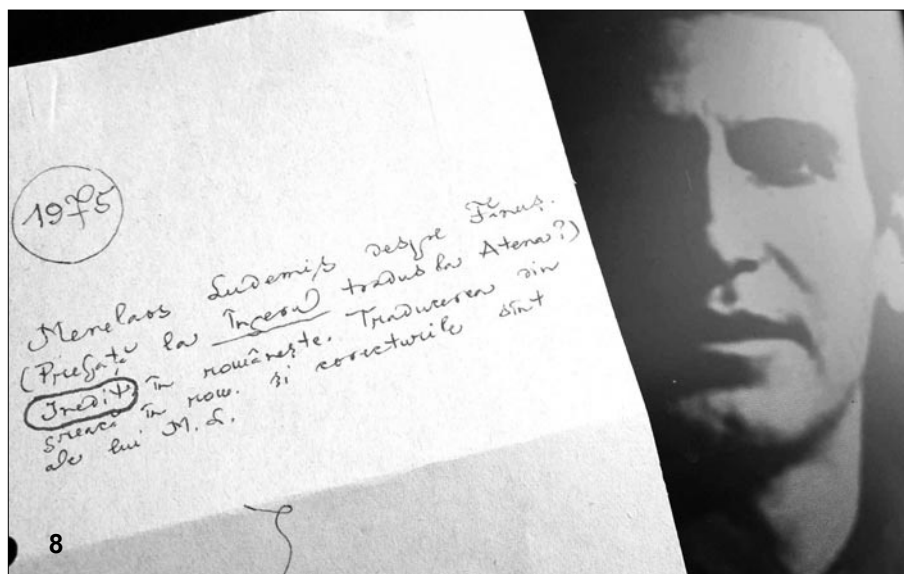 1975
Menelaos Ludemis despre Fănuș.
(Prefață la Îngerul tradus la Atena?)
Inedit în românește. Traducerea din
greacă în rom. și corecturile sînt
ale lui M. L.
8